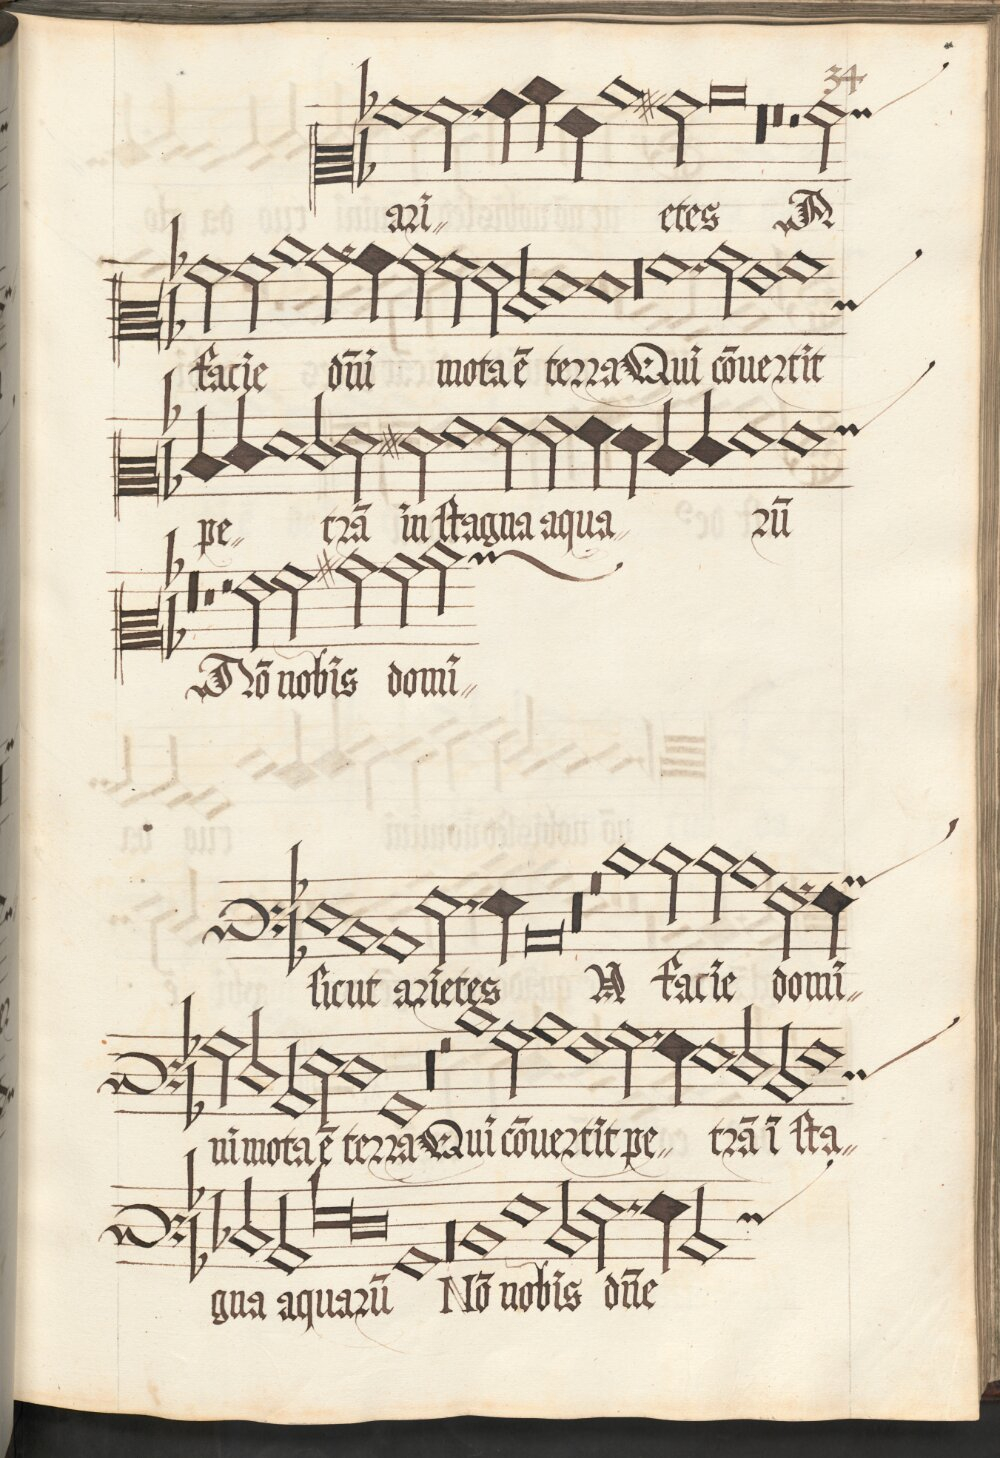 34
ari〃 etes A
facie dn̄i mota ē terra Qui cōuertit
pe〃 trā in stagna aqua〃 rū
Nō nobis domi〃
sicut arietes A facie domi〃
ni mota ē terra Qui cōuertit pe〃 trā ī sta〃
gna aquarū Nō nobis dn̄e